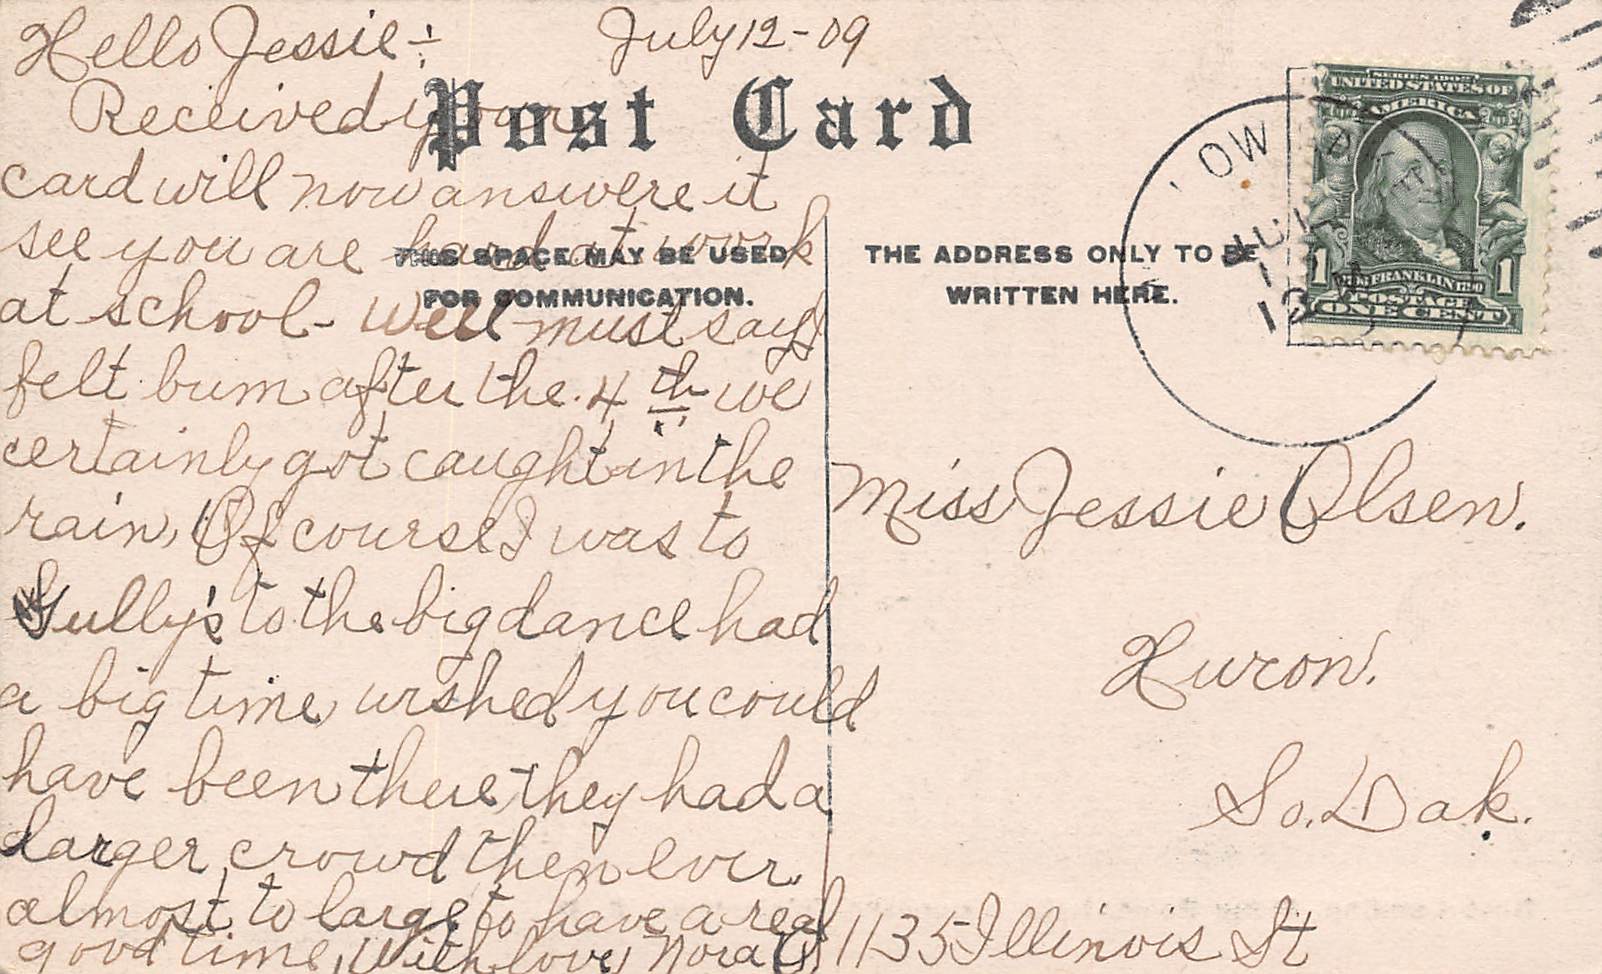 Hello Jessie÷ July 12-09
Post Card
Received your
card will now answere it
see you are hard at work
THIS SPACE MAY BE USED
FOR COMMUNICATION.
at school - Well must say I
felt bum after the 4th we
certainly got caught in the
rain, Of course I was to
Gully's to the big dance had
a big time wished you could
have been there, they had a
larger crowd then ever
almost to large to have a real
good time, With love Nora
THE ADDRESS ONLY TO BE
WRITTEN HERE.
SERIES 1902
UNITED STATES OF
AMERICA
1 FRANKLIN 1790 1
POSTAGE
ONE CENT
JUL
12
Miss Jessie Olsen.
Huron.
So. Dak.
1135 Illinois St